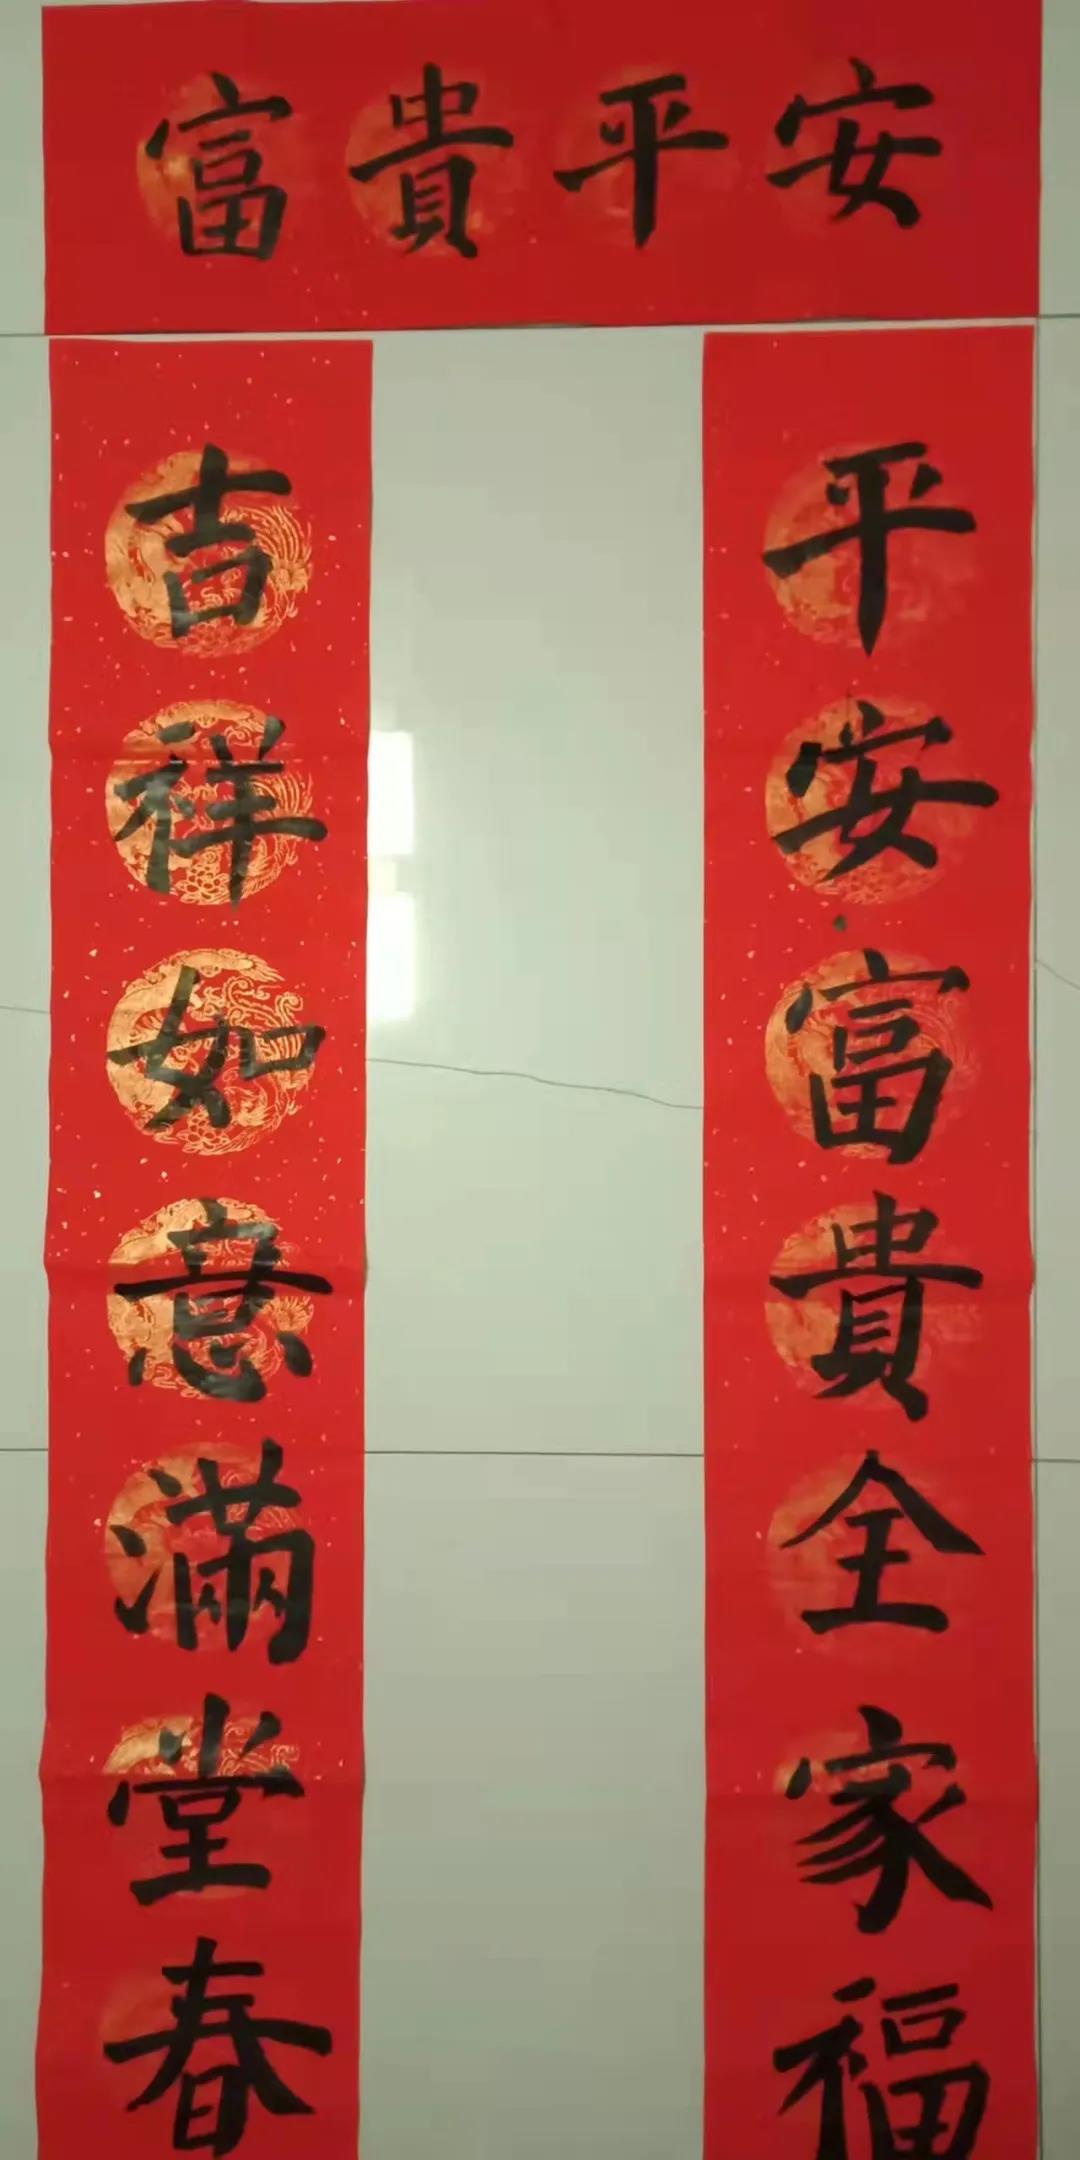 富貴平安
平安富貴全家福
吉祥如意滿堂春